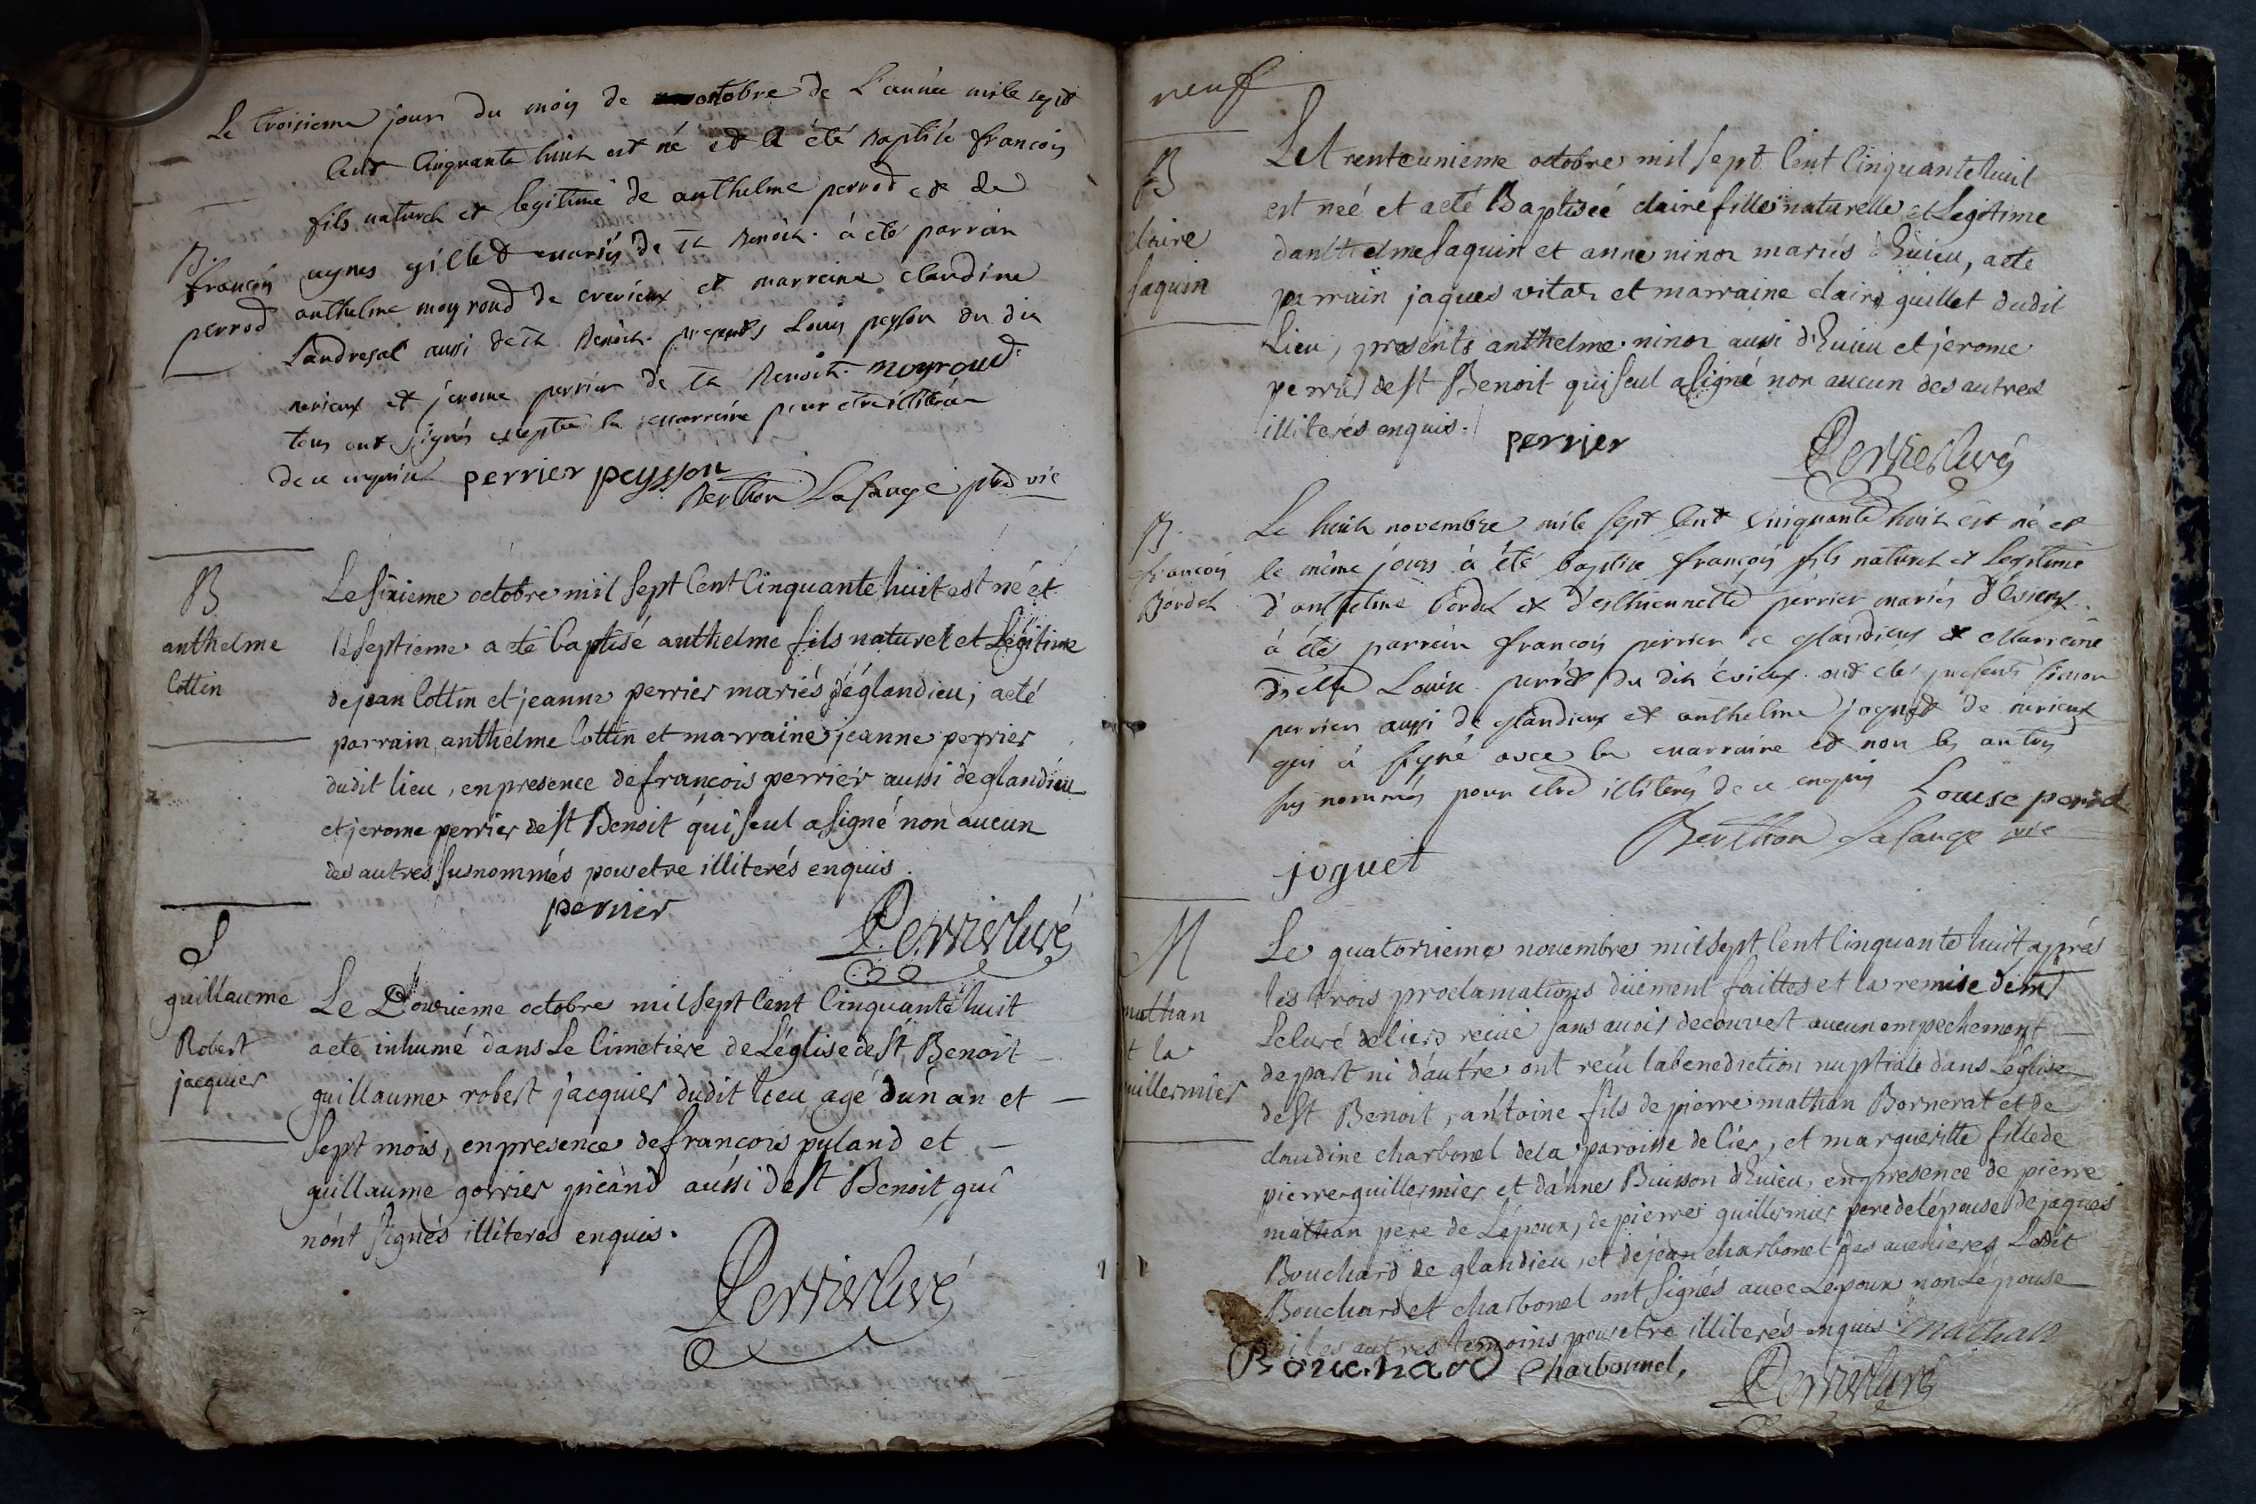 Le troisieme jour du mois de octobre de L'année mile sept
Cent Cinquante huit est né et a été baptisé francois
fils naturel et legitime de anthelme perrod et de
B.
francois
perrod
agnes gillet mariés de St Benoit. à été parrain
anthelme moyroud de crevieux et marraine claudine
Landresal aussi de St Benoit. presents Louis peysson du dit
et jerome perrier de St Benoit. moyroud
tous ont signés excepté la marraine pour etre illiterée
de ce enquise perrier peysson
Berthon Lafauge vic
B
anthelme
Cottin
Le sixieme octobre mil sept Cent Cinquante huit est né et
le septieme a eté baptisé anthelme fils naturel et Légitime
de jean Cottin et jeanne perrier mariés d'églandieu, a eté
parrain anthelme Cottin et marraine jeanne perrier
dudit lieu, en presence de françois perrier aussi de glandieu
et jerome perrier de St Benoit qui seul a signé non aucun
des autres susnommés pour etre illiterés enquis.
perrier
Perrier Curé
S
guillaume
Robert
jacquier
Le Douzieme octobre mil sept Cent Cinquante huit
a eté inhumé dans Le Cimetiere de L'églisede St Benoit
guillaume robert jacquier dudit lieu agé d'un an et
sept mois, en presence de francois pyland et
guillaume gorrier picand aussi de St Benoit qui
n'ont signés illiterés enquis.
Perrier Curé
neuf
B
claire
Saquin
Le trenteunieme octobre mil sept Cent Cinquante huit
est neé et a eté Baptiseé claire fille naturelle et Legitime
d'anthelme Saquin et anne ninoz mariés d'Evieu, a eté
parrain jaques vitoz et marraine claire guillet dudit
Lieu, presents anthelme ninoz aussi d'Evieu et jerome
perrier de St Benoit qui seul a signé non aucun des autres
illiterés enquis.
perrier
Perrier Curé
B.
francois
Bordel
Le huit novembre mile sept Cent Cinquante huit est né et
le même jours à été baptisé françois fils naturel et Legitime
d'anthelme bordel et d'esthiennette perrier mariés d'Evieux.
à été parrain françois perrier de glandieux et Marreine
Louise perret du dit évieux. ont étés presents simon
perrier aussi de glandieux et anthelme joguet de
qui à signé avec la marraine et non les autres
sus nommés pour etre illiterés de ce enquis Louise perret
Berthon Lafauge vic
joguet
M
mathan
et la
guillermier
Le quatorzieme novembre mil sept Cent Cinquante huit apprés
les trois proclamations düement faittes et la remise de mr
Le Curé de liers recüe sans avoir decouvert aucun empechement
de part ni d'autre ont reçu la benediction nuptiale dans L'église
de St Benoit, antoine fils de pierre mathan Bornerat et de
claudine charbonel de la paroisse de liers, et margueritte fille de
pierre guillermier et d'anne Buisson d'Evieu, en presence de pierre
mathan pere de L'époux, de pierre guillermier pere de l'épouse de jaques
Bouchard de glandieu, et de jean charbonel des avenieres Ledit
Bouchard et charbonel ont signés avec L'epoux non L'épouse
ni les autres temoins pour etre illiterés enquis mathan
Bouchard charbonnel,
Perrier Curé